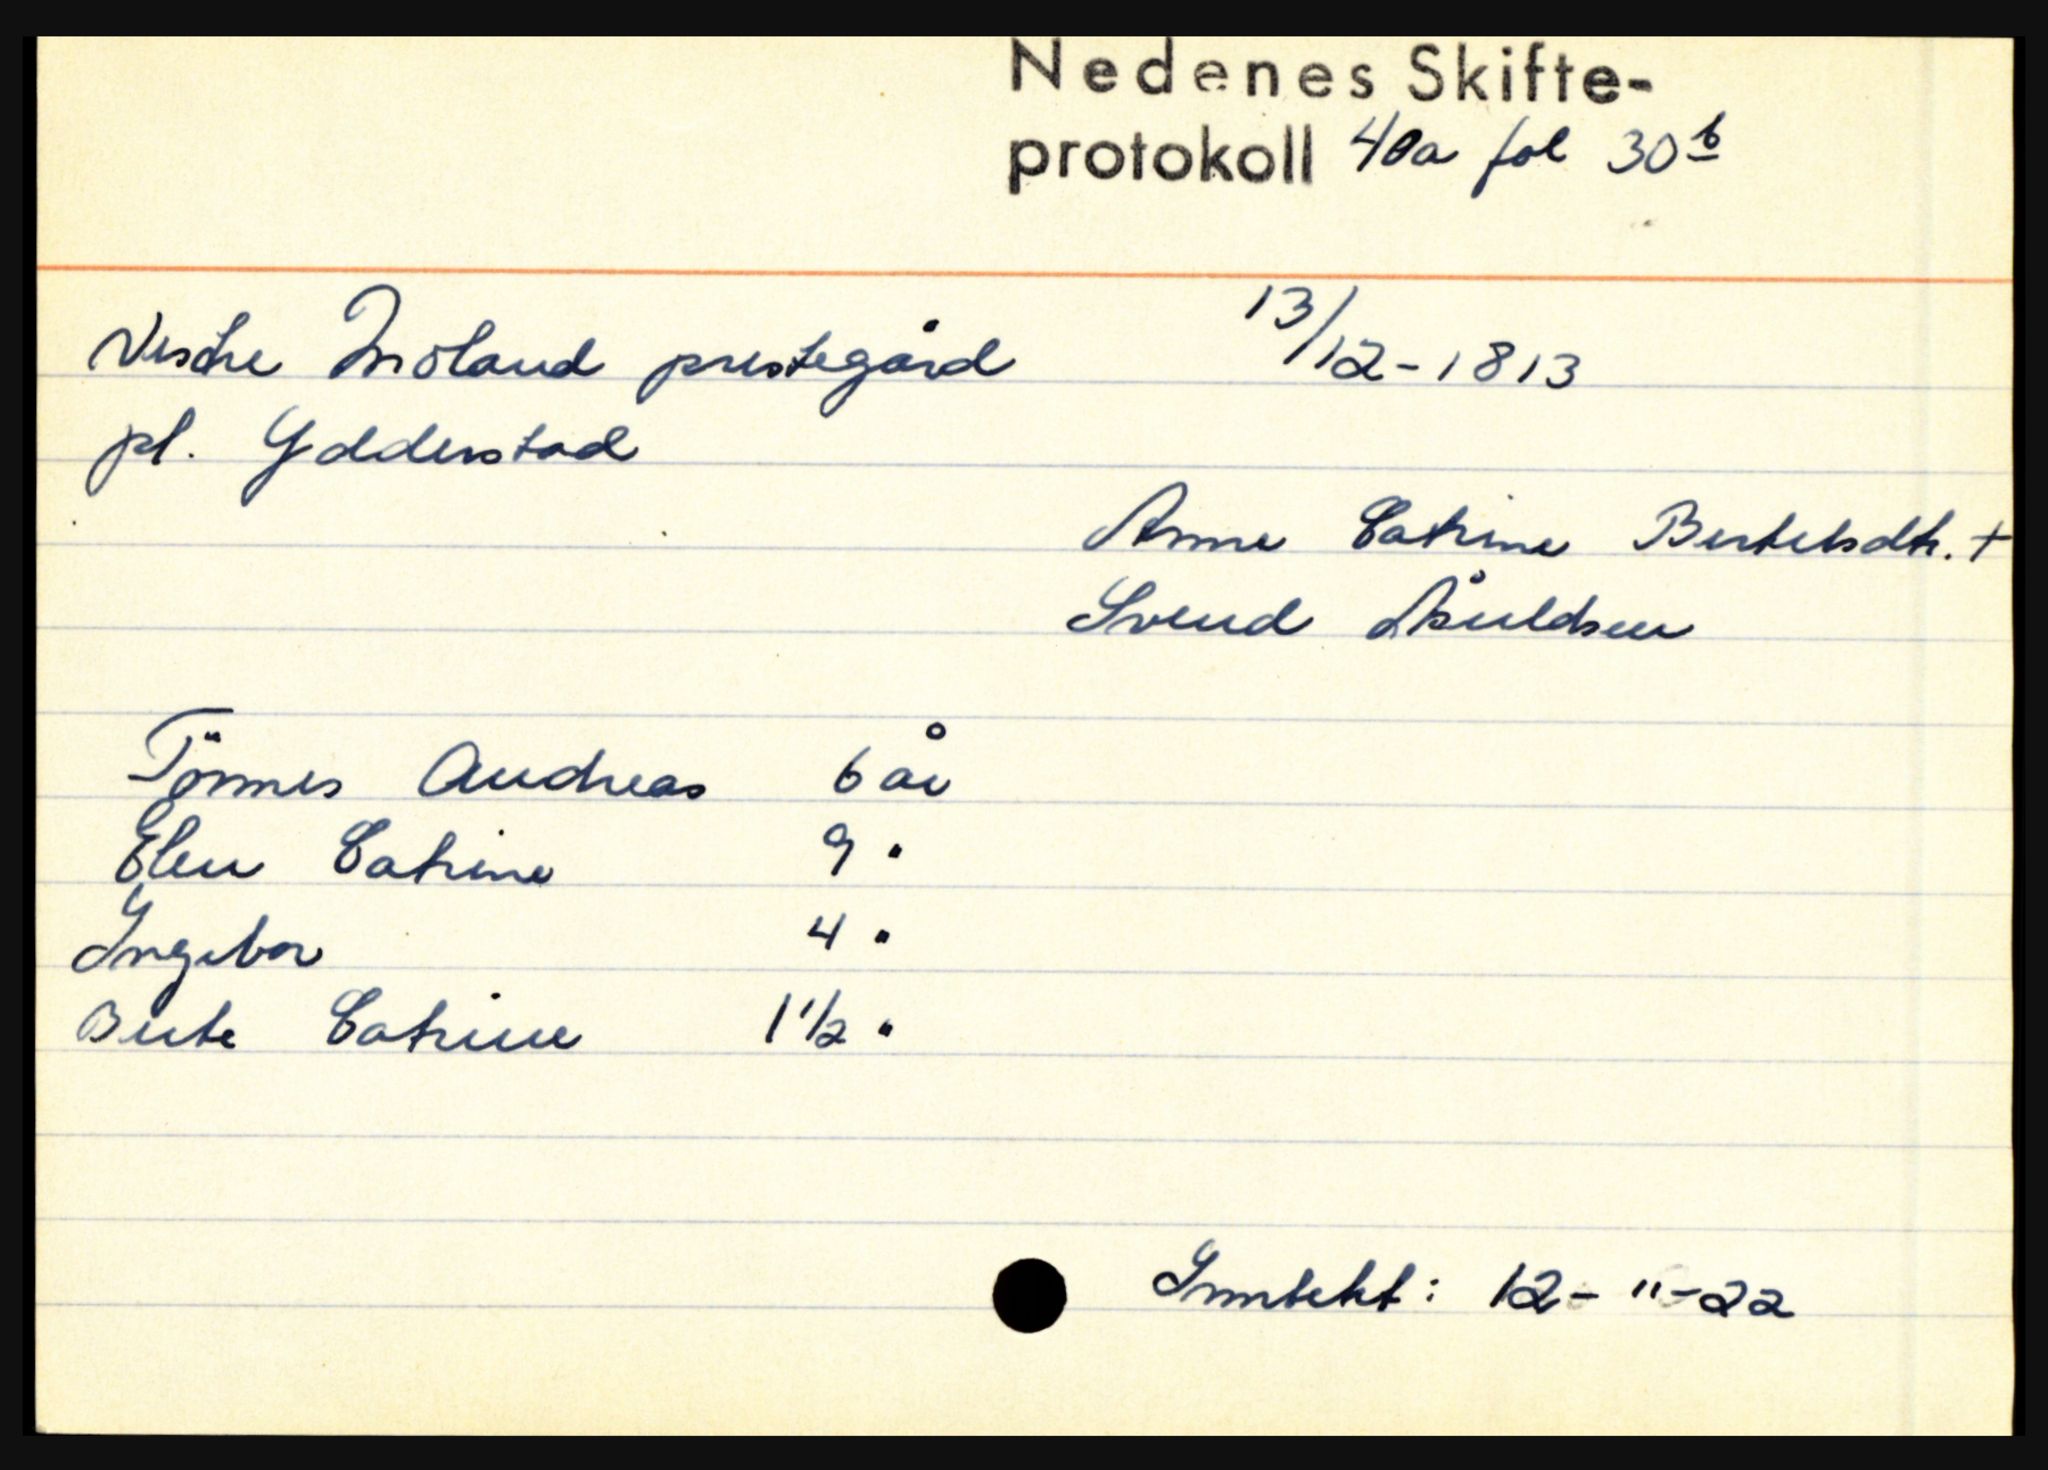 Nedenes Skifte-
protokoll 40a fol 30b
Vestre Moland prestegård 13/12-1813
pl. Ydderstad
Anne Catrine Bertelsdtr. +
Svend Åsuldsen
Tönnes Andreas 6 år
Elen Catrine 9 "
Ingebor 4 "
Berte Catrine 1 1/2 "
Inntekt: 12- " -22